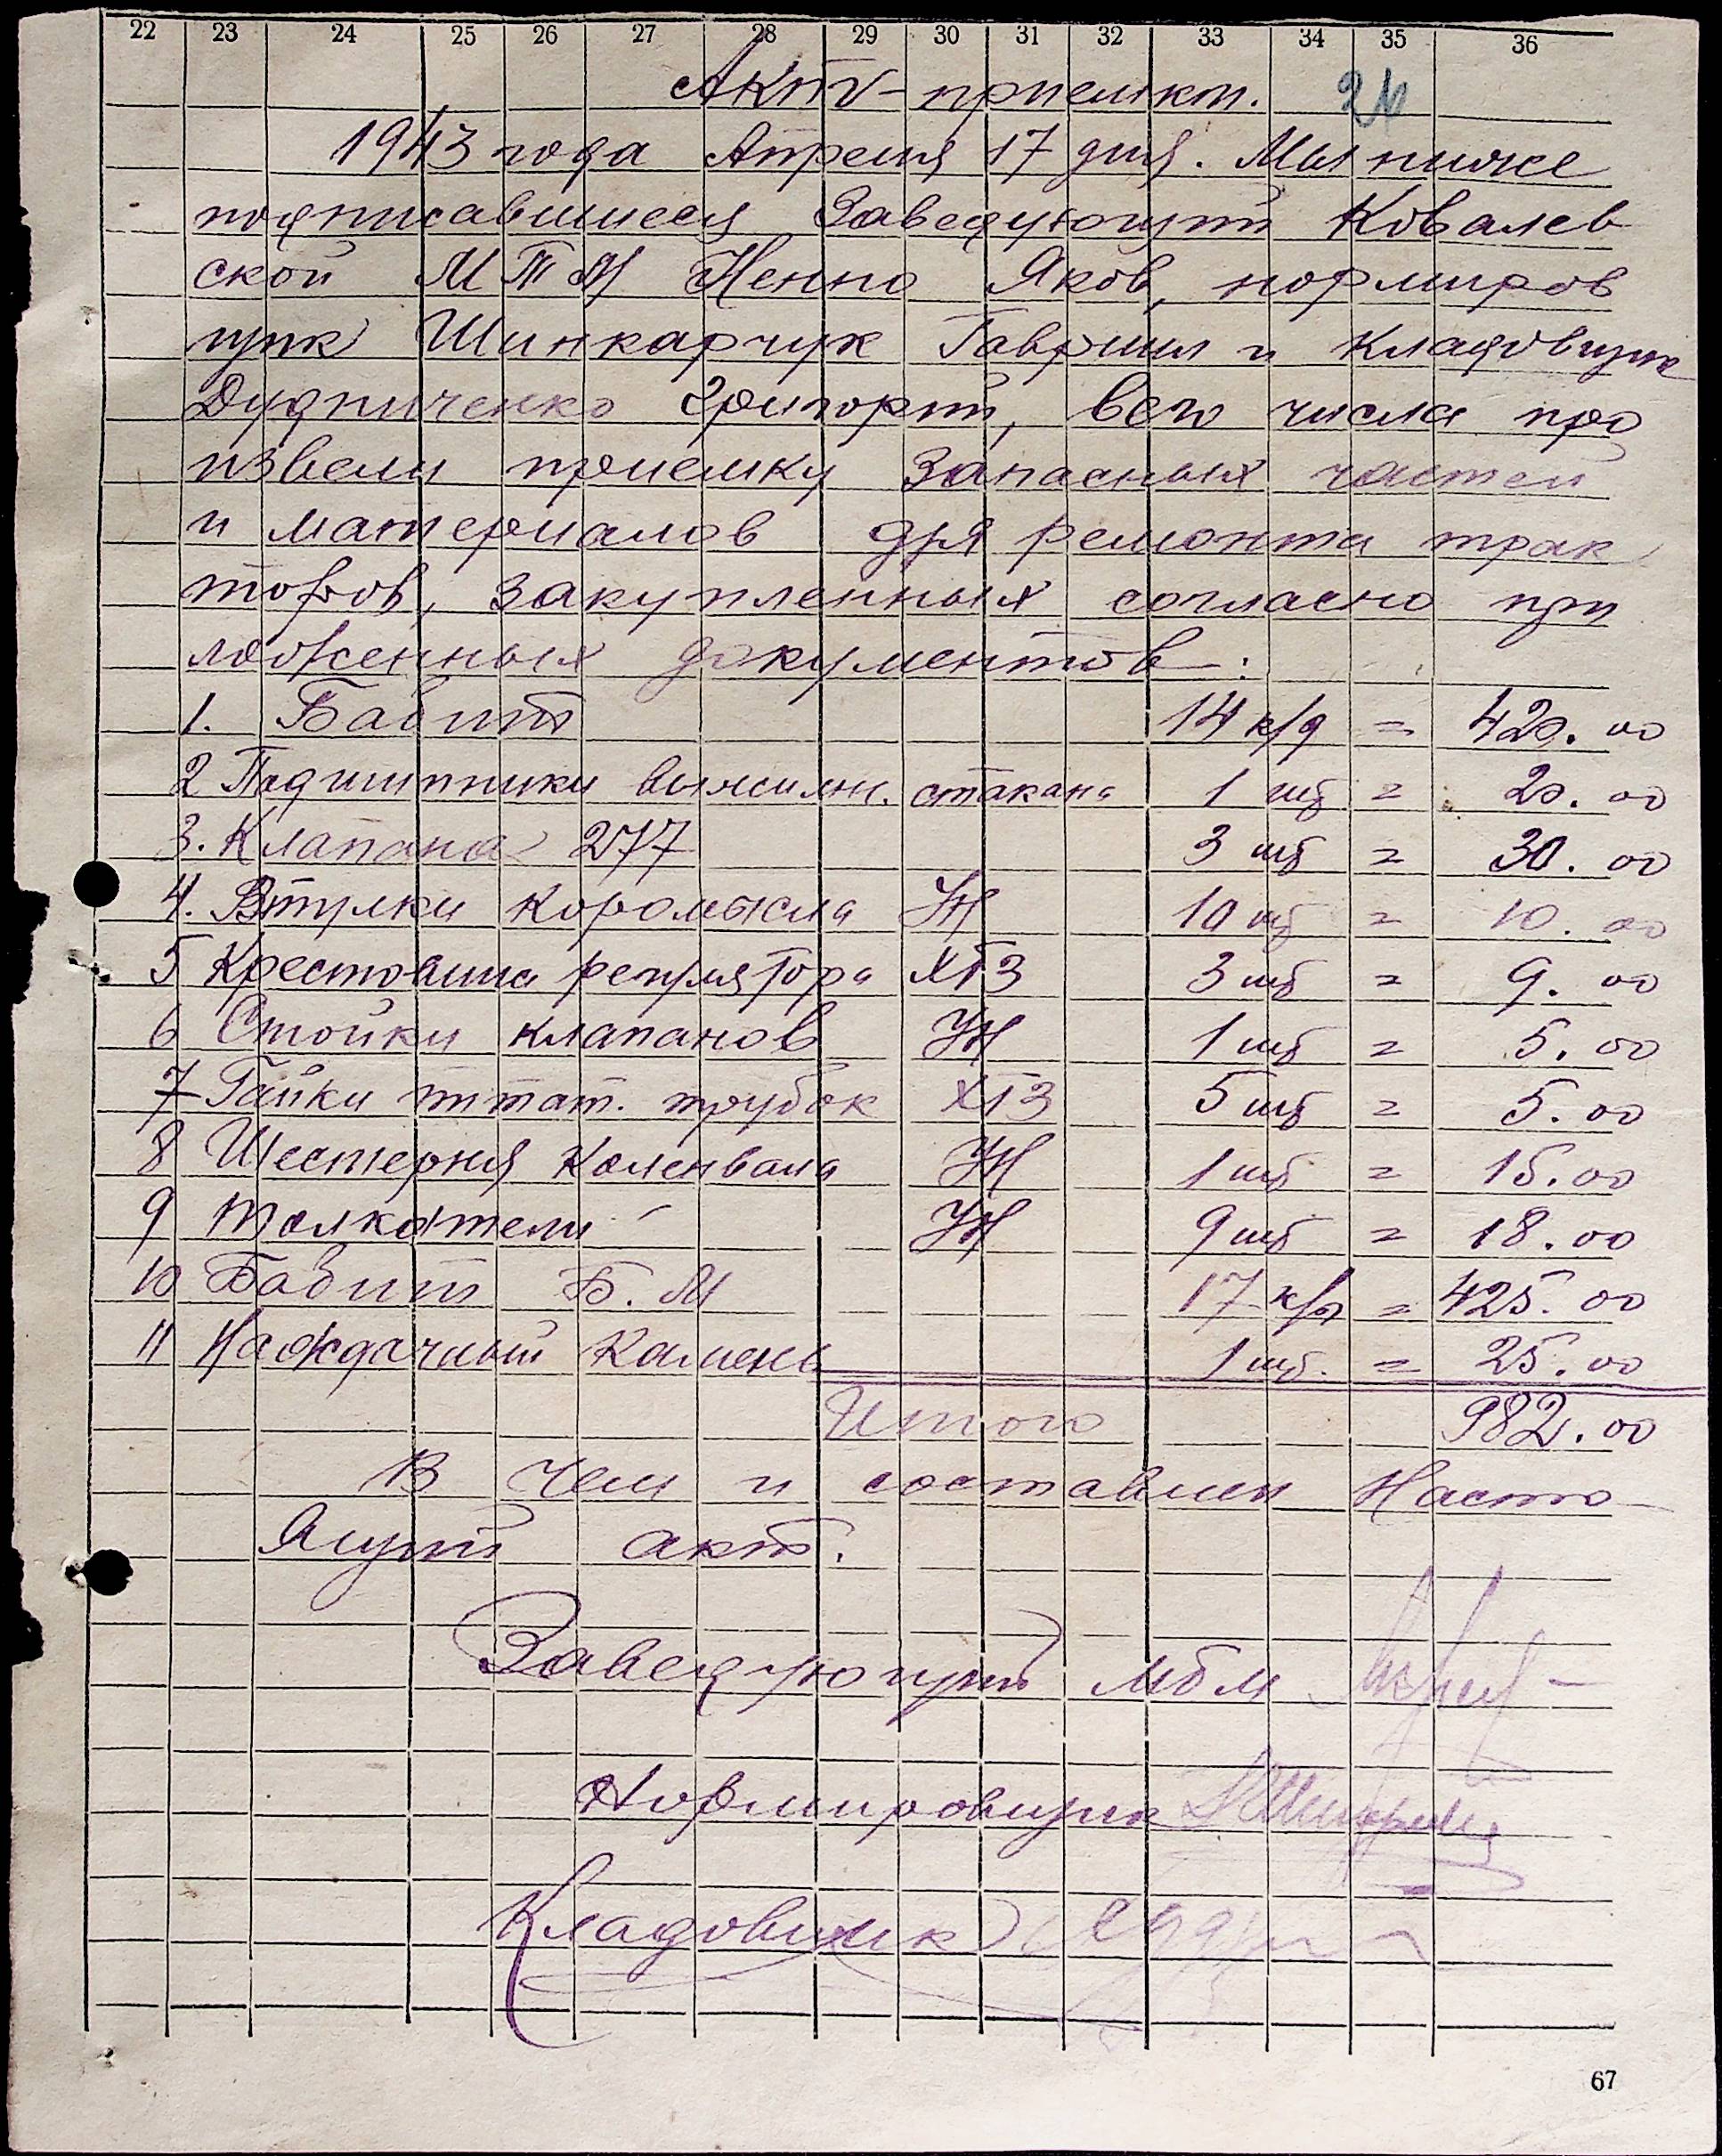 22 23 24 25 26 27 28 29 30 31 32 33 34 35 36
Акт-приемки.
1943 года Апреля 17 дня. Мы ниже
подписавшиеся Заведующий Ковалев
ской МТМ Ненно Яков, нормиров
щик Шинкарчук Гавриил и Кладовщик
Дудниченко Григорий, всего числа про
извели приемку Запасных частей
и материалов для ремонта трак
торов, закупленных согласно при
ложенных документов:
1. Бабит 14 к/г = 420.00
2 Подшипники выжимн. стакана 1 шт = 20.00
3. Клапана 277 3 шт = 30.00
4. Втулки Коромысла УН 10 шт = 10.00
5 Крестовина регулятора ХТЗ 3 шт = 9.00
6 Стойки клапанов УН 1 шт = 5.00
7 Гайки питат. трубок ХТЗ 5 шт = 5.00
8 Шестерня Коленвала УН 1 шт = 15.00
9 Толкатели УН 9 шт = 18.00
10 Бабит Б.М 17 к/г = 425.00
11 Наждачный Камень 1 шт. = 25.00
Итого 982.00
В чем и составлен Насто
Ящий акт.
Заведующий
Нормировщик
Кладовщик
67